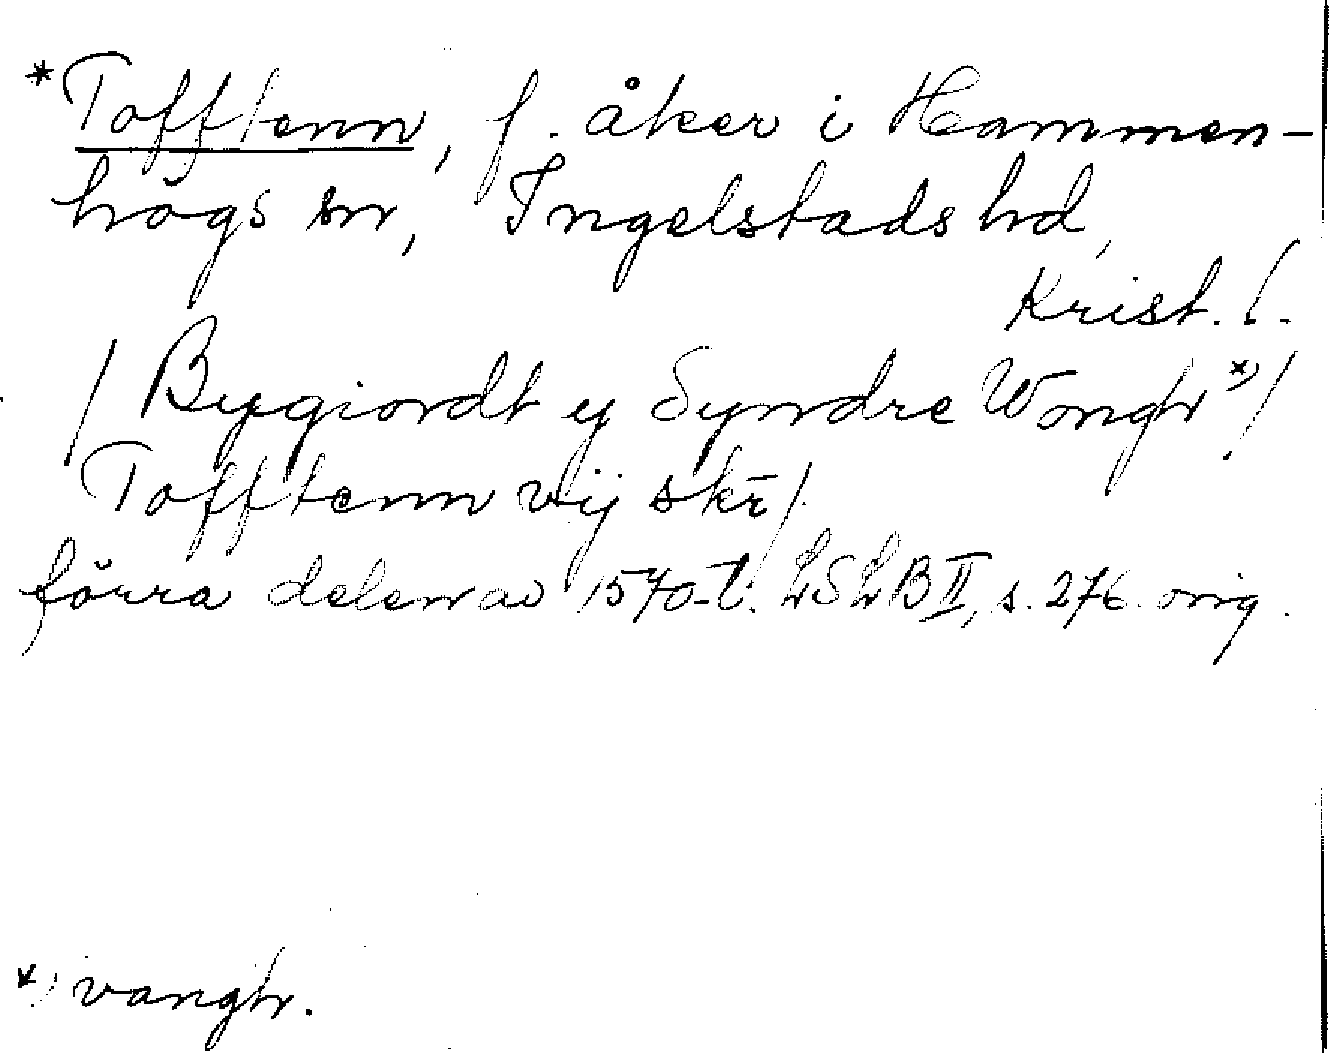 *Tofftenn, f. åker i Hammen-
högs sn, Ingelstads hd,
Krist. l.
/Bygiordt ij Syndre Wongh*)/
Tofftenn vij skr̄/
förra delen av 1570-t. LSLB II, s. 276. orig.
*) vangh.